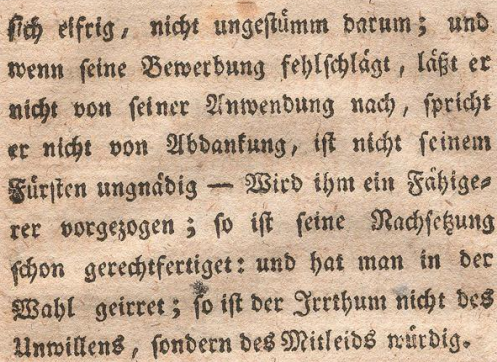 sich eifrig, nicht ungestümm darum; und
wenn seine Bewerbung fehlschlägt, läßt er
nicht von seiner Anwendung nach, spricht
er nicht von Abdankung, ist nicht seinem
Fürsten ungnädig — Wird ihm ein Fähige-
rer vorgezogen; so ist seine Nachsetzung
schon gerechtfertiget: und hat man in der
Wahl geirret; so ist der Irrthum nicht des
Unwillens, sondern des Mitleids würdig.